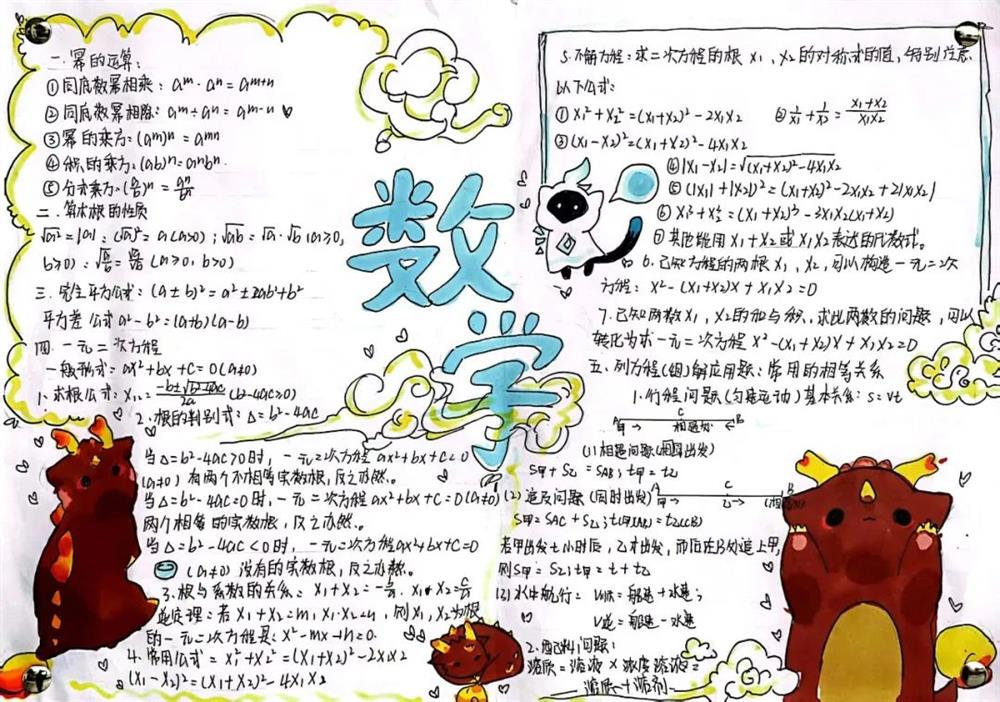 一.幂的运算:
①同底数幂相乘: aᵐ·aⁿ=aᵐ⁺ⁿ
②同底数幂相除: aᵐ÷aⁿ=aᵐ⁻ⁿ
③幂的乘方:(aᵐ)ⁿ=aᵐⁿ
④积的乘方:(ab)ⁿ=aⁿbⁿ
⑤分式乘方:(a/b)ⁿ=aⁿ/bⁿ
二.算术根的性质
√a²=|a|;(√a)²=a(a≥0);√ab=√a·√b(a≥0,
b≥0);√a/b=√a/√b(a≥0,b>0)
三.完全平方公式:(a±b)²=a²±2ab+b²
平方差公式a²-b²=(a+b)(a-b)
四.一元二次方程
一般形式=ax²+bx+c=0(a≠0)
1.求根公式:x₁,₂=-b±√b²-4ac/2a(b²-4ac≥0)
2.根的判别式:△=b²-4ac
当△=b²-4ac>0时,一元二次方程ax²+bx+c=0
(a≠0)有两个不相等实数根,反之亦然。
当△=b²-4ac=0时,一元二次方程ax²+bx+c=0(a≠0)
两个相等的实数根,反之亦然。
当△=b²-4ac<0时,一元二次方程ax²+bx+c=0
(a≠0)没有的实数根,反之亦然。
3.根与系数的关系:x₁+x₂=-b/a,x₁·x₂=c/a
逆定理:若x₁+x₂=m,x₁·x₂=n,则x₁,x₂为根
的一元二次方程是:x²-mx+n=0.
4.常用公式=x₁²+x₂²=(x₁+x₂)²-2x₁x₂
(x₁-x₂)²=(x₁+x₂)²-4x₁x₂
数
学
5.不解方程:求二次方程的根x₁,x₂的对称式的值,特别注意
以下公式:
①x₁²+x₂²=(x₁+x₂)²-2x₁x₂ ②1/x₁+1/x₂=x₁+x₂/x₁x₂
③(x₁-x₂)²=(x₁+x₂)²-4x₁x₂
④|x₁-x₂|=√(x₁+x₂)²-4x₁x₂
⑤(|x₁|+|x₂|)²=(x₁+x₂)²-2x₁x₂+2|x₁x₂|
⑥x₁³+x₂³=(x₁+x₂)³-3x₁x₂(x₁+x₂)
⑦其他能用x₁+x₂或x₁x₂表达的代数式。
6.已知方程的两根x₁,x₂,可以构造一元二次
方程:x²-(x₁+x₂)x+x₁x₂=0
7.已知两数x₁,x₂的和与积,求此两数的问题,可以
转化为求一元二次方程x²-(x₁+x₂)x+x₁x₂=0
五.列方程(组)解应用题:常用的相等关系
1.行程问题(匀速运动)基本关系:s=vt
C
甲→ 相遇处 ←B
(1)相遇问题(同时出发)
S甲+S乙=SAB;t甲=t乙
(2)追及问题(同时出发)
A C B
甲→ 乙→ (相遇处)
S甲=SAC+S乙;t甲(AB)=t乙(CB)
若甲出发t小时后,乙才出发,而后在B处追上甲,
则S甲=S乙;t甲=t+t乙
(3)水中航行= V顺=船速+水速;
V逆=船速-水速
2.配料问题:
溶质=溶液×浓度 溶液=
溶质+溶剂